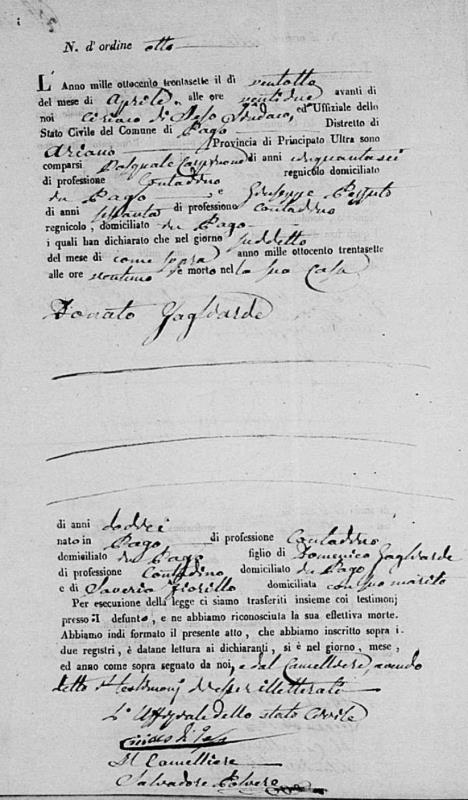 N. d'ordine otto
L'Anno mille ottocento trentasette il dì ventotto
del mese di Aprile alle ore ventidue avanti di
noi Ciriaco di Peso Sindaco, ed Uffiziale dello
Stato Civile del Comune di Pago Distretto di
Ariano Provincia di Principato Ultra sono
comparsi Pasquale di anni cinquantasei
di professione Contadino regnicolo domiciliato
in Pago e Giuseppe
di anni sessanta di professione Contadino
regnicolo, domiciliato in Pago
i quali han dichiarato che nel giorno suddetto
del mese di come sopra anno mille ottocento trentasette
alle ore ventuno è morto nel la sua Casa
Donato Gagliarde
di anni dodici
nato in Pago di professione Contadino
domiciliato in Pago figlio di Domenico Gagliarde
di professione Contadino domiciliato in Pago
e di Saveria Fiorillo domiciliata con suo marito
Per esecuzione della legge ci siamo trasferiti insieme coi testimonj
presso il defunto, e ne abbiamo riconosciuta la sua effettiva morte.
Abbiamo indi formato il presente atto, che abbiamo inscritto sopra i
due registri, è datane lettura ai dichiaranti, si è nel giorno, mese,
ed anno come sopra segnato da noi, e dal Cancelliere, avendo
detto i testimonj di esser illetterati
L'Uffiziale dello stato Civile
Il Cancelliere
Salvadore Polvere